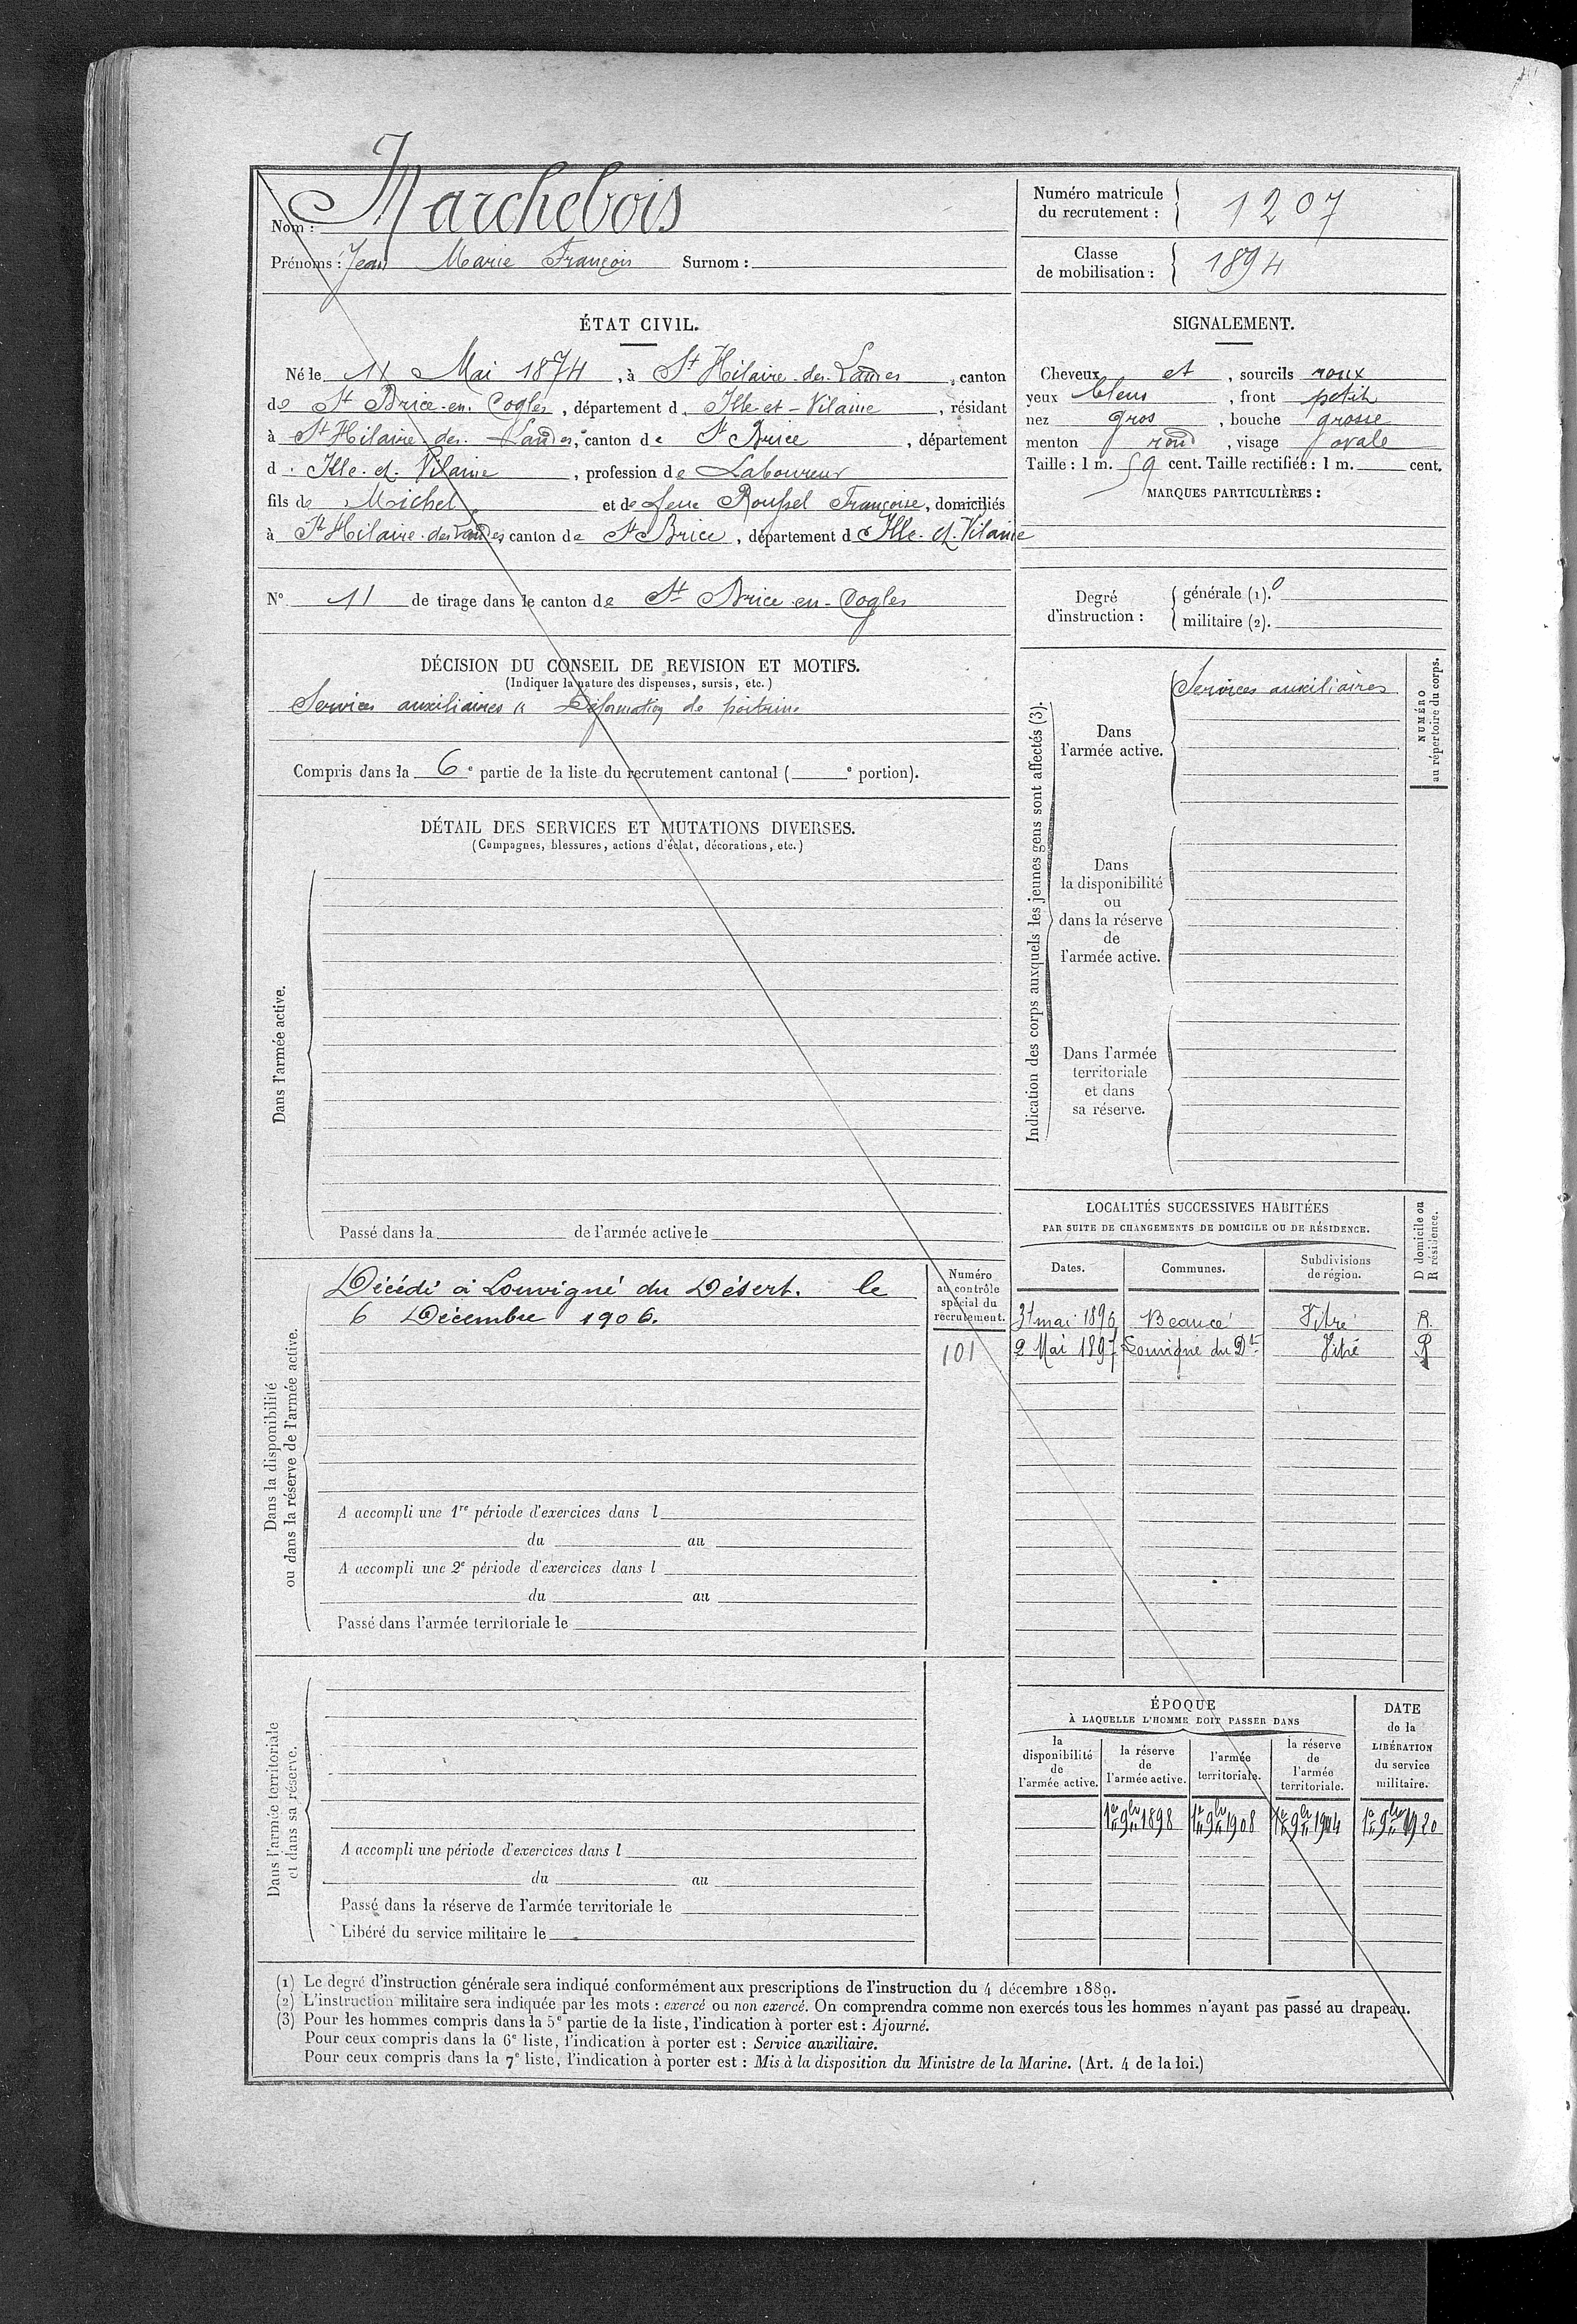 Nom : Marchebois
Prénoms : Jean Marie François Surnom :
Numéro matricule du recrutement : 1207
Classe de mobilisation : 1894
ÉTAT CIVIL.
Né le 11 Mai 1874, à St Hilaire-des-Landes, canton
de St Brice-en-Cogles, département d. Ille-et-Vilaine, résidant
à St Hilaire-des-Landes, canton de St Brice, département
d. Ille-et-Vilaine, profession de Laboureur
fils de Michel et de feue Roussel Françoise, domiciliés
à St Hilaire-des-Landes canton de St Brice, département d Ille-et-Vilaine
N° 11 de tirage dans le canton de St Brice-en-Cogles
DÉCISION DU CONSEIL DE REVISION ET MOTIFS.
(Indiquer la nature des dispenses, sursis, etc.)
Services auxiliaires Déformation de poitrine
Compris dans la 6e partie de la liste du recrutement cantonal ( e portion).
DÉTAIL DES SERVICES ET MUTATIONS DIVERSES.
(Campagnes, blessures, actions d'éclat, décorations, etc.)
Dans l'armée active.
Passé dans la de l'armée active le
Dans la disponibilité
ou dans la réserve de l'armée active.
Décédé à Louvigné du Désert. le
6 Décembre 1906.
Numéro
au contrôle
spécial du
recrutement.
101
A accompli une 1re période d'exercices dans l
du au
A accompli une 2e période d'exercices dans l
du au
Passé dans l'armée territoriale le
Dans l'armée territoriale
et dans sa réserve.
A accompli une période d'exercices dans l
du au
Passé dans la réserve de l'armée territoriale le
Libéré du service militaire le
SIGNALEMENT.
Cheveux et, sourcils roux
yeux bleus, front petit
nez gros, bouche grosse
menton rond, visage ovale
Taille : 1 m. 59 cent. Taille rectifiée : 1 m. cent.
MARQUES PARTICULIÈRES :
Degré
d'instruction :
générale (1). 0
militaire (2).
Indication des corps auxquels les jeunes gens sont affectés (3).
Dans
l'armée active.
Services auxiliaires
NUMÉRO
au répertoire du corps.
Dans
la disponibilité
ou
dans la réserve
de
l'armée active.
Dans l'armée
territoriale
et dans
sa réserve.
LOCALITÉS SUCCESSIVES HABITÉES
PAR SUITE DE CHANGEMENTS DE DOMICILE OU DE RÉSIDENCE.
D domicile ou
R résidence.
Dates. Communes. Subdivisions de région.
31 mai 1896 Beaucé Vitré R.
2 Mai 1897 Louvigné du Dt Vitré R
ÉPOQUE
À LAQUELLE L'HOMME DOIT PASSER DANS
la disponibilité de l'armée active.
la réserve de l'armée active.
l'armée territoriale.
la réserve de l'armée territoriale.
DATE de la LIBÉRATION du service militaire.
1er 9bre 1898 1er 9bre 1908 1er 9bre 1914 1er 9bre 1920
(1) Le degré d'instruction générale sera indiqué conformément aux prescriptions de l'instruction du 4 décembre 1889.
(2) L'instruction militaire sera indiquée par les mots : exercé ou non exercé. On comprendra comme non exercés tous les hommes n'ayant pas passé au drapeau.
(3) Pour les hommes compris dans la 5e partie de la liste, l'indication à porter est : Ajourné.
Pour ceux compris dans la 6e liste, l'indication à porter est : Service auxiliaire.
Pour ceux compris dans la 7e liste, l'indication à porter est : Mis à la disposition du Ministre de la Marine. (Art. 4 de la loi.)